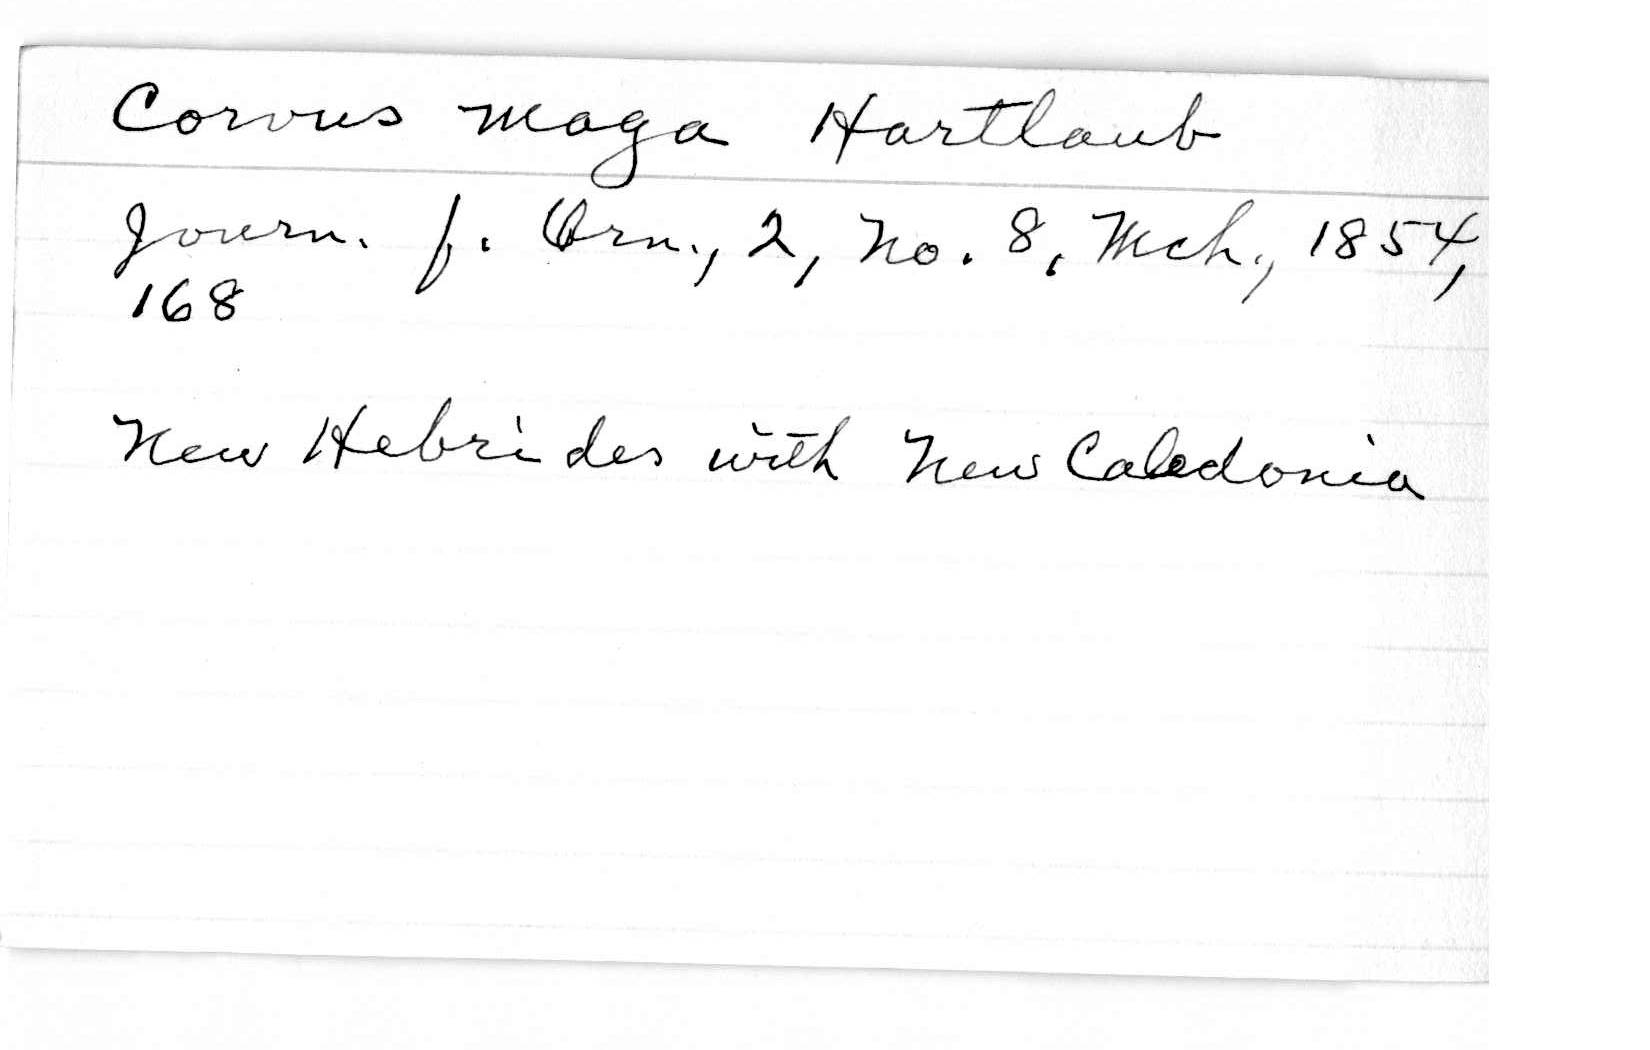 Corvus maga Hartlaub
Journ. f. Orn., 2, No. 8, Mch., 1854,
168
New Hebrides with New Caledonia